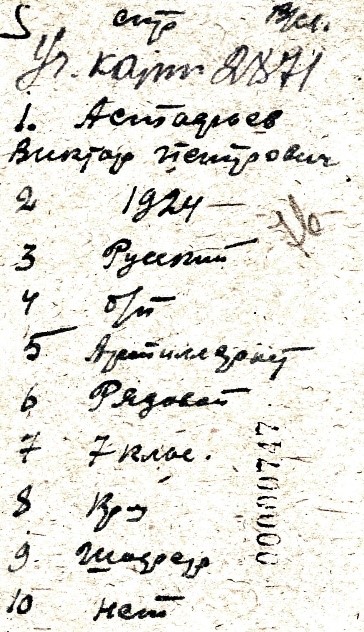 5 стр
Уч. карт 2871
1. Астафьев
Виктор Петрович
2 1924 —
3 Русский
4 б/п
5 Артиллерист
6 Рядовой
7 7 клас.
8
9 Шофер
10 нет
00000747